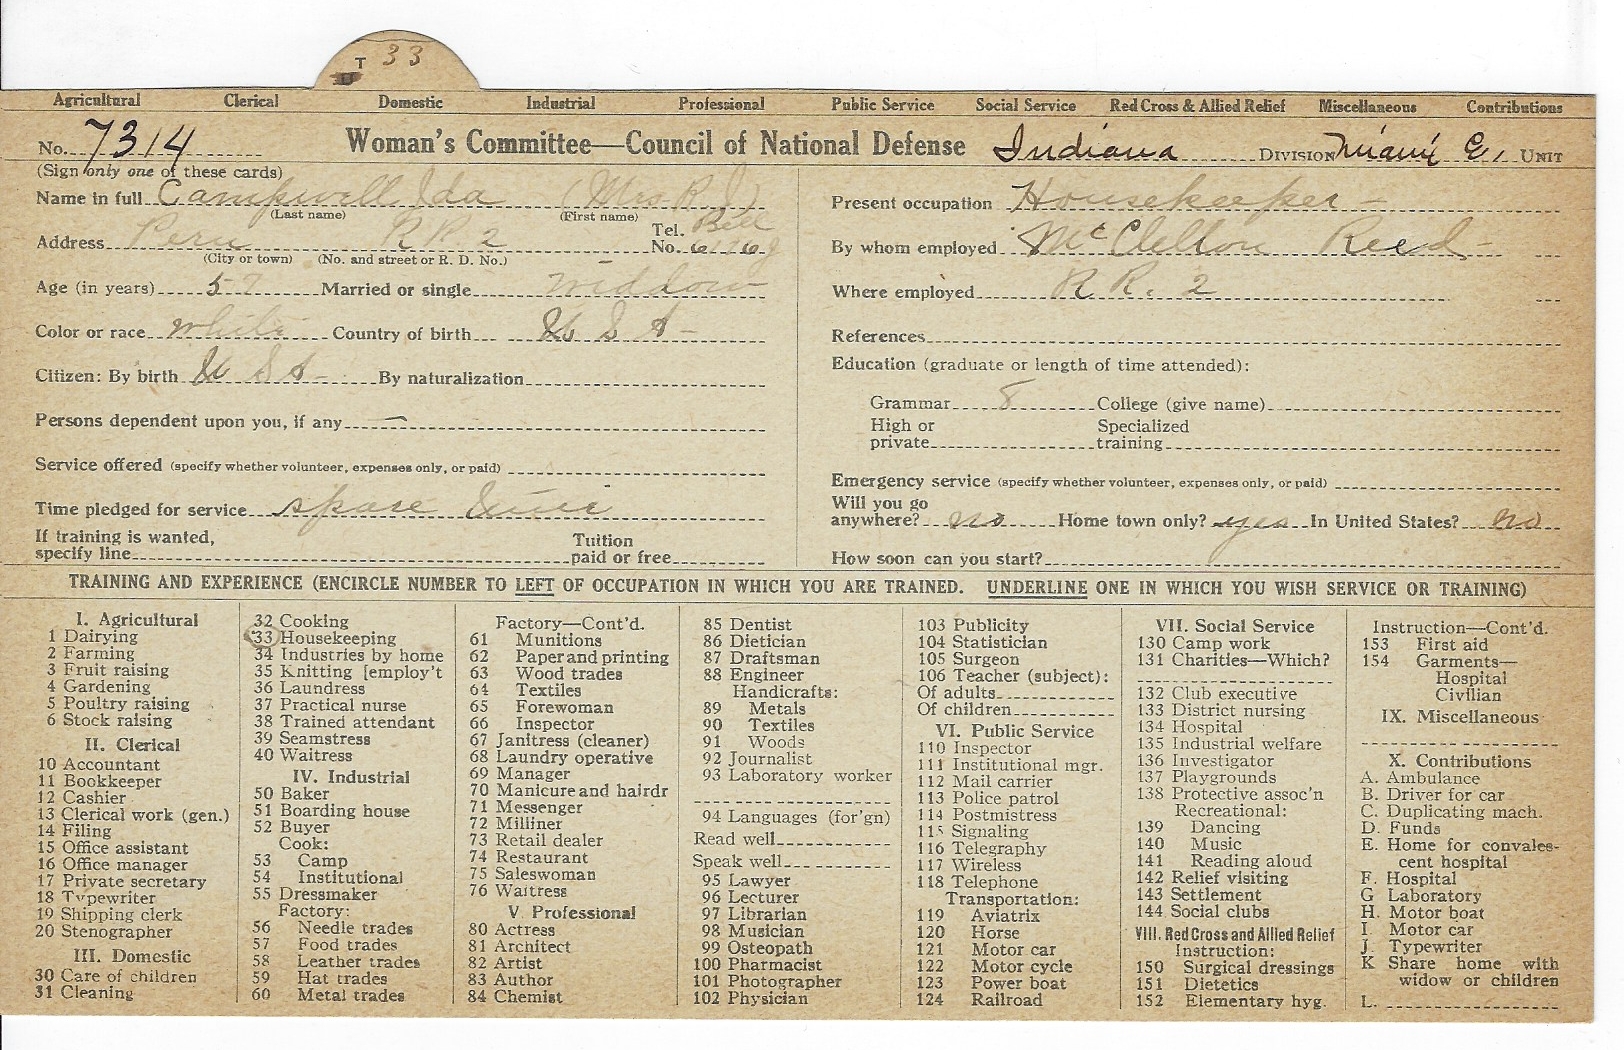 T 33
Agricultural Clerical Domestic Industrial Professional Public Service Social Service Red Cross & Allied Relief Miscellaneous Contributions
No. 7314 Woman's Committee—Council of National Defense Indiana DIVISION Miami Co. UNIT
(Sign only one of these cards)
Name in full Campwell Ida (Mrs R. J)
(Last name) (First name)
Address Peru R R 2 Tel. No. Bell
(City or town) (No. and street or R. D. No.)
Age (in years) 57 Married or single widow
Color or race white Country of birth U S A
Citizen: By birth U S A By naturalization
Persons dependent upon you, if any —
Service offered (specify whether volunteer, expenses only, or paid)
Time pledged for service spare time
If training is wanted, specify line Tuition paid or free
Present occupation Housekeeper
By whom employed McClellon Reed
Where employed R R. 2
References
Education (graduate or length of time attended):
Grammar 8 College (give name)
High or private Specialized training
Emergency service (specify whether volunteer, expenses only, or paid)
Will you go anywhere? no Home town only? yes In United States? no
How soon can you start?
TRAINING AND EXPERIENCE (ENCIRCLE NUMBER TO LEFT OF OCCUPATION IN WHICH YOU ARE TRAINED. UNDERLINE ONE IN WHICH YOU WISH SERVICE OR TRAINING)
I. Agricultural
1 Dairying
2 Farming
3 Fruit raising
4 Gardening
5 Poultry raising
6 Stock raising
II. Clerical
10 Accountant
11 Bookkeeper
12 Cashier
13 Clerical work (gen.)
14 Filing
15 Office assistant
16 Office manager
17 Private secretary
18 Typewriter
19 Shipping clerk
20 Stenographer
III. Domestic
30 Care of children
31 Cleaning
32 Cooking
33 Housekeeping
34 Industries by home
35 Knitting [employ't
36 Laundress
37 Practical nurse
38 Trained attendant
39 Seamstress
40 Waitress
IV. Industrial
50 Baker
51 Boarding house
52 Buyer
Cook:
53 Camp
54 Institutional
55 Dressmaker
Factory:
56 Needle trades
57 Food trades
58 Leather trades
59 Hat trades
60 Metal trades
Factory—Cont'd.
61 Munitions
62 Paper and printing
63 Wood trades
64 Textiles
65 Forewoman
66 Inspector
67 Janitress (cleaner)
68 Laundry operative
69 Manager
70 Manicure and hairdr
71 Messenger
72 Milliner
73 Retail dealer
74 Restaurant
75 Saleswoman
76 Waitress
V. Professional
80 Actress
81 Architect
82 Artist
83 Author
84 Chemist
85 Dentist
86 Dietician
87 Draftsman
88 Engineer
Handicrafts:
89 Metals
90 Textiles
91 Woods
92 Journalist
93 Laboratory worker
94 Languages (for'gn)
Read well
Speak well
95 Lawyer
96 Lecturer
97 Librarian
98 Musician
99 Osteopath
100 Pharmacist
101 Photographer
102 Physician
103 Publicity
104 Statistician
105 Surgeon
106 Teacher (subject):
Of adults
Of children
VI. Public Service
110 Inspector
111 Institutional mgr.
112 Mail carrier
113 Police patrol
114 Postmistress
115 Signaling
116 Telegraphy
117 Wireless
118 Telephone
Transportation:
119 Aviatrix
120 Horse
121 Motor car
122 Motor cycle
123 Power boat
124 Railroad
VII. Social Service
130 Camp work
131 Charities—Which?
132 Club executive
133 District nursing
134 Hospital
135 Industrial welfare
136 Investigator
137 Playgrounds
138 Protective assoc'n
Recreational:
139 Dancing
140 Music
141 Reading aloud
142 Relief visiting
143 Settlement
144 Social clubs
VIII. Red Cross and Allied Relief
Instruction:
150 Surgical dressings
151 Dietetics
152 Elementary hyg.
Instruction—Cont'd.
153 First aid
154 Garments—
Hospital
Civilian
IX. Miscellaneous
X. Contributions
A. Ambulance
B. Driver for car
C. Duplicating mach.
D. Funds
E. Home for convales-
cent hospital
F. Hospital
G Laboratory
H. Motor boat
I. Motor car
J. Typewriter
K Share home with
widow or children
L.